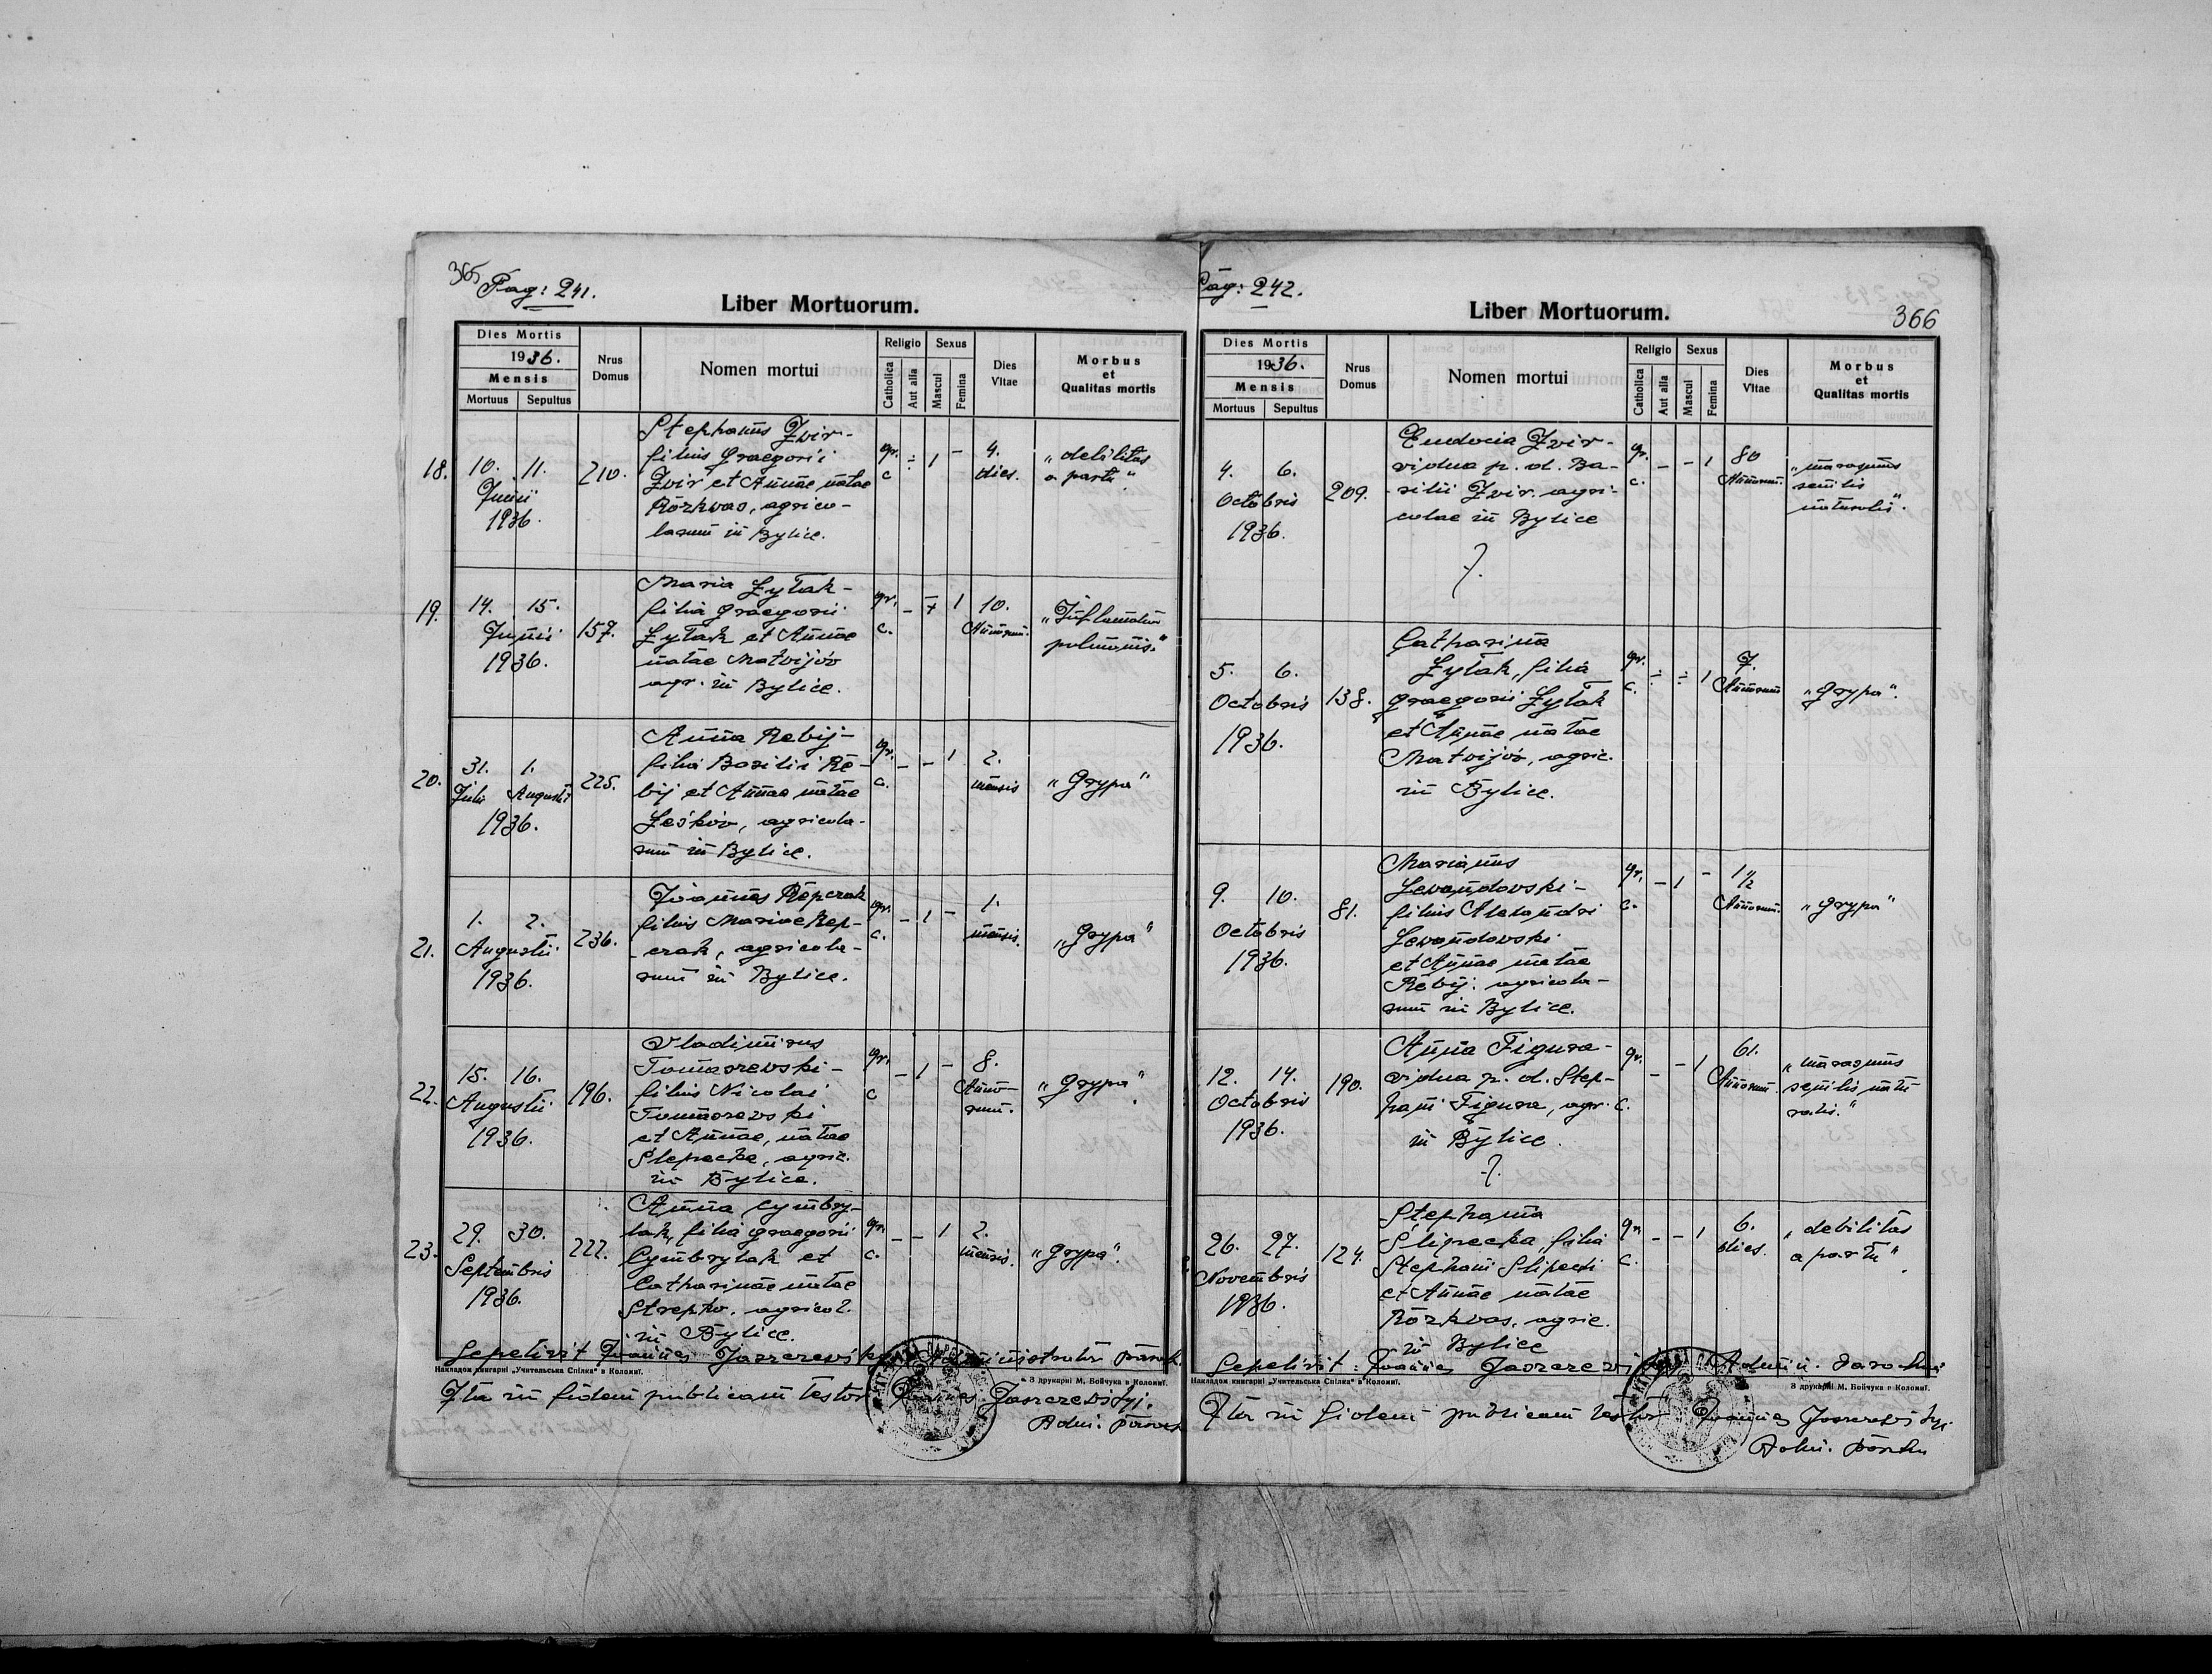 365
Pag: 241.
Liber Mortuorum.
Dies Mortis
1936.
Mensis
Mortuus Sepultus
Nrus Domus
Nomen mortui
Religio
Catholica
Aut alia
Sexus
Mascul
Femina
Dies Vitae
Morbus et Qualitas mortis
18.
10. 11.
Junii
1936.
210.
Stephanus Zvir-
filius Graegorii
Zvir et Annae natae
Rózkvas, agrico-
larum in Bylice.
gr.
c
÷ 1 -
4.
dies.
"debilitas
a partu"
19.
14. 15.
Junii
1936.
157.
Maria Zytak-
filia Graegorii
Zytak et Annae
natae Matvijóv
agr. in Bylice.
gr.
c.
- 1
10.
Annorum.
"Inflamatio
pulmonis."
20.
31. 1.
Julii Augusti
1936.
225.
Anna Rebij-
filia Basilii Re-
bij et Annae natae
Leśkóv, agricola-
rum in Bylice.
gr.
c.
- - 1
2.
mensis
"Grypa"
21.
1. 2.
Augusti
1936.
236.
Joannes Repczak
filius Mariae Rep-
czak, agricola-
rum in Bylice.
gr.
c.
- 1 -
1.
mensis.
"Grypa"
22.
15. 16.
Augusti
1936.
196.
Vladimirus
Tomaszevski-
filius Nicolai
Tomaszevski
et Annae, natae
Slepecka, agric.
in Bylice.
gr.
c
- 1 -
8.
Anno-
rum.
"Grypa".
23.
29. 30.
Septembris
1936.
222.
Anna Cymbry-
lak, filia Graegorii
Cymbrylak et
Catharinae natae
Strepko, agricol.
in Bylice.
gr.
c.
- - 1
2.
mensis.
"Grypa".
Sepelivit Joannes
Накладом книгарні „Учительська Спілка" в Коломиї.
З друкарні М. Бойчука в Коломиї.
Ita in fidem publicam testor Joannes
Adm.
Pag: 242.
Liber Mortuorum.
366
Dies Mortis
1936.
Mensis
Mortuus Sepultus
Nrus Domus
Nomen mortui
Religio
Catholica
Aut alia
Sexus
Mascul
Femina
Dies Vitae
Morbus et Qualitas mortis
4. 6.
Octobris
1936.
209.
Eudocia Zvir-
vidua p. d. Ba-
silii Zvir. agri-
colae in Bylice
gr.
c.
- - 1
80
Annorum.
"marasmus
senilis
naturalis".
5. 6.
Octobris
1936.
138.
Catharina
Zytak, filia
Graegorii Zytak
et Annae natae
Matvijóv, agric.
in Bylice.
gr.
c.
÷ ÷ 1
7.
Annorum
"Grypa".
9. 10.
Octobris
1936.
81.
Marianus
Levandovski-
filius Alexandri
Levandovski
et Annae natae
Rebij. agricola-
rum in Bylice.
gr.
c.
- 1 -
1½
Annorum.
"Grypa"
12. 14.
Octobris
1936.
190.
Anna Figura-
vidua p. d. Step-
hani Figura, agr.
in Bylice.
gr.
c.
- - 1
61.
Annorum.
"marasmus
senilis natu-
ralis."
26. 27.
Novembris
1936.
124.
Stephania
Slipecka, filia
Stephani Slipecki
et Annae natae
Rózkvas. agric.
in Bylice
gr.
c.
- - 1
6.
dies.
"debilitas
a partu"
Sepelivit: Joannes
Накладом книгарні „Учительська Спілка" в Коломиї.
З друкарні М. Бойчука в Коломиї.
Ita in fidem publicam testor Joannes
Adm.